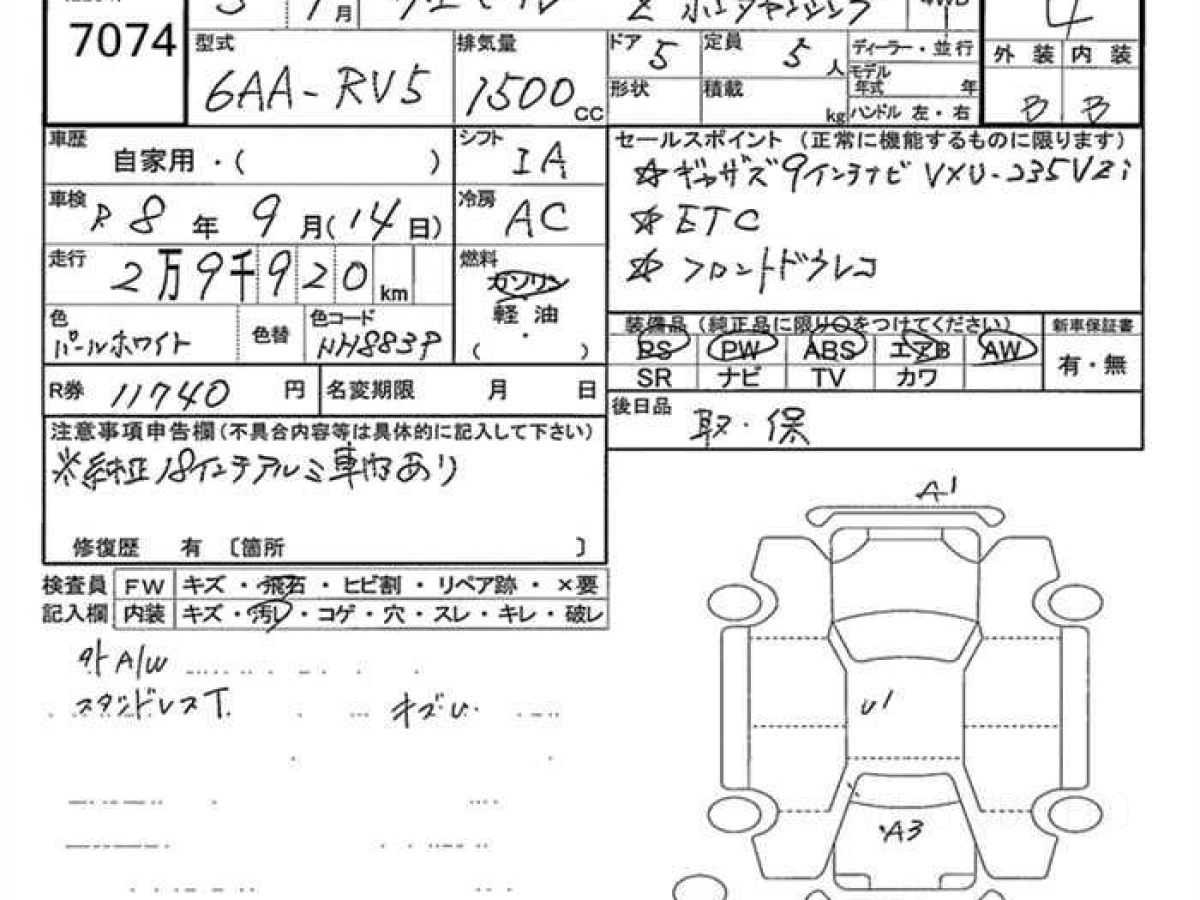 7074
型式 6AA-RV5
排気量 1500 CC
ドア 5
定員 5 人
ディーラー・並行
外装 内装
形状
積載 kg
モデル年式 年
ハンドル 左・右
B B
車歴 自家用・( )
シフト IA
セールスポイント (正常に機能するものに限ります)
☆ギャザズ9インチナビ VXU-235VZi
車検 R8年9月(14日)
冷房 AC
☆ETC
走行 2万9千920km
燃料 ガソリン
☆フロントドラレコ
軽油
・
( )
色 パールホワイト
色替
色コード NH883P
装備品 (純正品に限り○をつけてください)
新車保証書
PS PW ABS エアB AW
有・無
SR ナビ TV カワ
R券 11740 円
名変期限 月 日
後日品 取・保
注意事項申告欄(不具合内容等は具体的に記入して下さい)
※純正18インチアルミ車内あり
修復歴 有 〔箇所 〕
検査員 FW キズ・飛石・ヒビ割・リペア跡・×要
記入欄 内装 キズ・汚レ・コゲ・穴・スレ・キレ・破レ
外A/W
スタッドレスT.
キズU.
A1
U1
A3